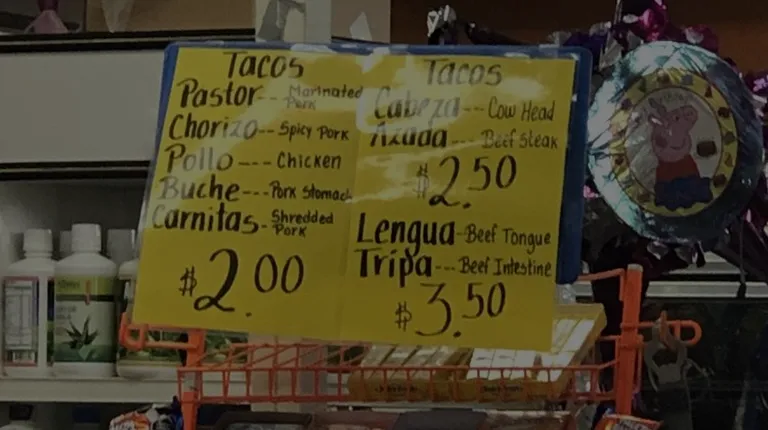 Tacos
Pastor-- Marinated Pork
Chorizo-- Spicy Pork
Pollo--- Chicken
Buche---Pork Stomach
Carnitas- Shredded Pork
$2.00
Tacos
Cabeza--- Cow Head
Azada--- Beef Steak
$2.50
Lengua-Beef Tongue
Tripa--- Beef Intestine
$3.50